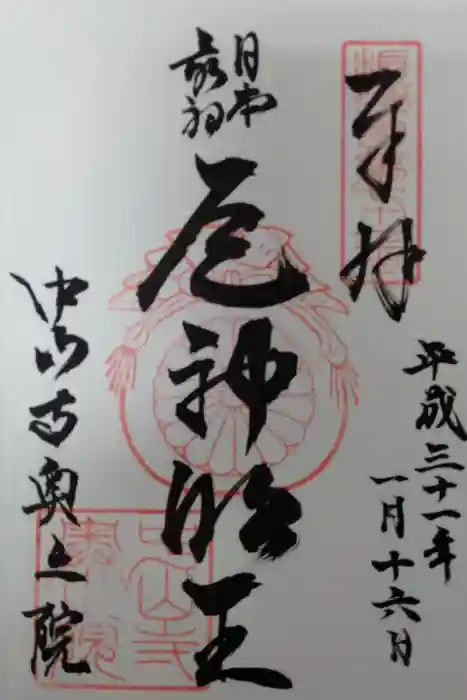 奉拝
平成三十一年
一月十六日
日本
最初
厄神明王
中山寺奥之院
中山寺
奥之院